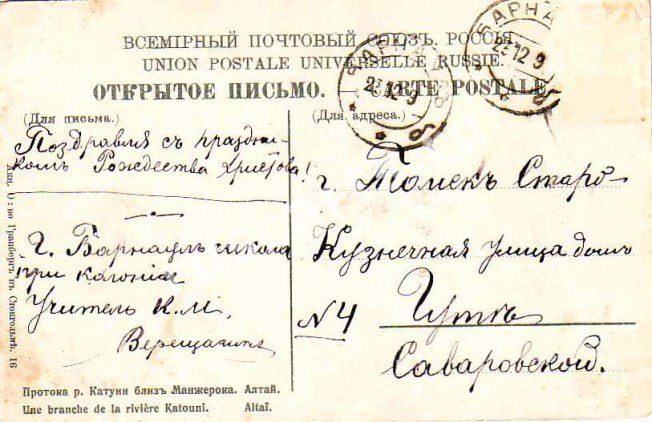 ВСЕМІРНЫЙ ПОЧТОВЫЙ СОЮЗЪ. РОССІЯ.
UNION POSTALE UNIVERSELLE RUSSIE.
ОТКРЫТОЕ ПИСЬМО. — CARTE POSTALE
БАРНА
23 12 9
БАРНА
23 12 9
(Для письма.)
Поздравия съ праздни-
комъ Рождества Христова!
г. Барнаулъ школа
при
Учитель К. М.
Верещагинъ
(Для адреса.)
г. Томскъ Старо-
Кузнечная улица домъ
№ 4
Саваровской.
Акц. О-во Гранбергъ въ Стокгольмѣ. 16
Протока р. Катуни близъ Манжерока. Алтай.
Une branche de la rivière Katouni. Altaï.